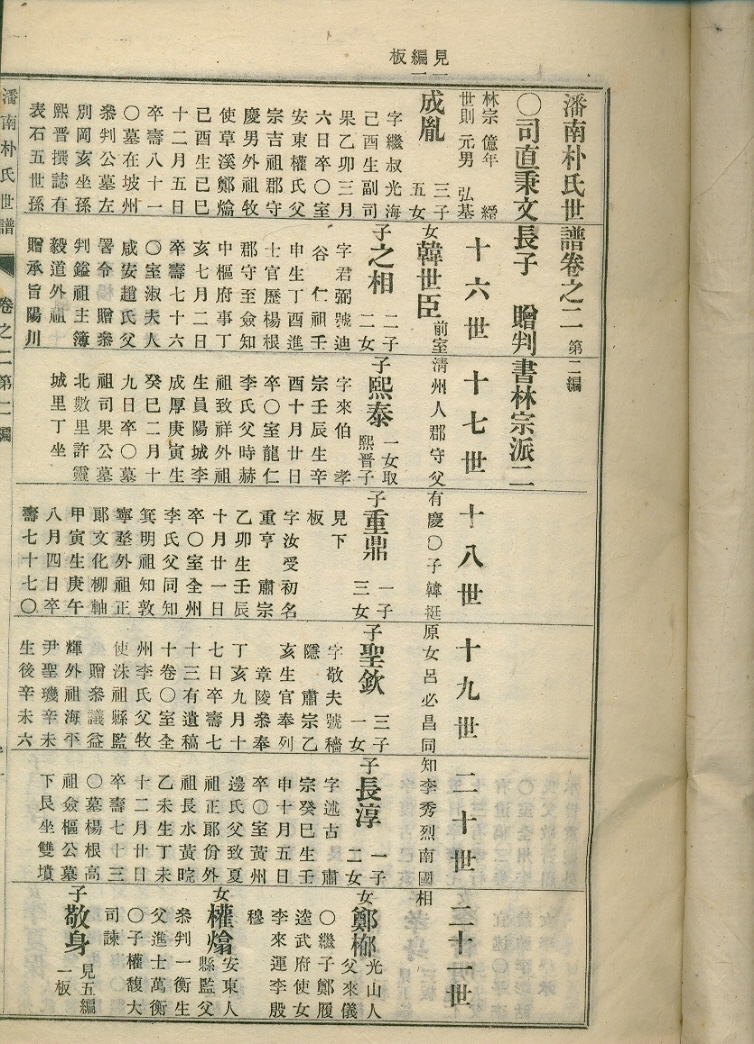 見一
編一
板
潘南朴氏世譜卷之二 第二編
○司直秉文長子 贈判書林宗派二
林宗 億年 縉
世則 元男 弘基
十六世
十七世
十八世
十九世
二十世
二十一世
成胤 三子
五女
字繼叔光海
己酉生副司
果乙卯三月
六日卒○室
安東權氏父
宗吉祖郡守
慶男外祖牧
使草溪鄭㷍
己酉生己巳
十二月五日
卒壽八十一
○墓在坡州
叅判公墓左
別岡亥坐孫
熙晋撰誌有
表石五世孫
女韓世臣
前室清州人郡守父有慶○子韓挺原女呂必昌同知李秀烈南國相
子之相 二子
二女
字君弼號迪
谷 仁祖壬
申生丁酉進
士官歷楊根
郡守至僉知
中樞府事丁
亥七月二日
卒壽七十六
○室淑夫人
咸安趙氏父
署令楊贈叅
判鎰祖主簿
毅道外祖
贈承旨陽川
子熙泰 一女取
熙晉子
字來伯 孝
宗壬辰生辛
酉十月廿日
卒○室龍仁
李氏父時赫
祖致祥外祖
生員陽城李
成厚庚寅生
癸巳二月十
九日卒○墓
祖司果公墓
北數里許靈
城里丁坐
子重鼎 一子
三女
見下
板
字汝受初名
重亨 肅宗
乙卯生壬辰
十月廿一日
卒○室全州
李氏父同知
箕明祖知敦
寧墪外祖正
郞文化柳軸
甲寅生庚午
八月四日卒
壽七十七○
子聖欽 三子
一女
字敬夫號穡
隱 肅宗乙
亥生官奉列
章陵叅奉
丁亥九月十
七日卒壽七
十三有遺稿
十卷○室全
州李氏父牧
使洙祖縣監
贈叅議益
輝外祖海平
尹聖璣辛未
生後辛未六
子長淳 一子
二女
字述古 肅
宗癸巳生壬
申十月五日
卒○室黃州
邊氏父致夏
祖正郞份外
祖長水黃晥
乙未生丁未
十二月廿日
卒壽七十三
○墓楊根高
祖僉樞公墓
下艮坐雙墳
女鄭㮋 光山人
父來儀
○繼子鄭履
逵武府使女
李來運李殷
穆
女權熻 安東人
縣監父
叅判一衡生
父進士萬衡
○子權馥大
司諫
子敬身 見五編
一板
潘南朴氏世譜 卷之二第二編